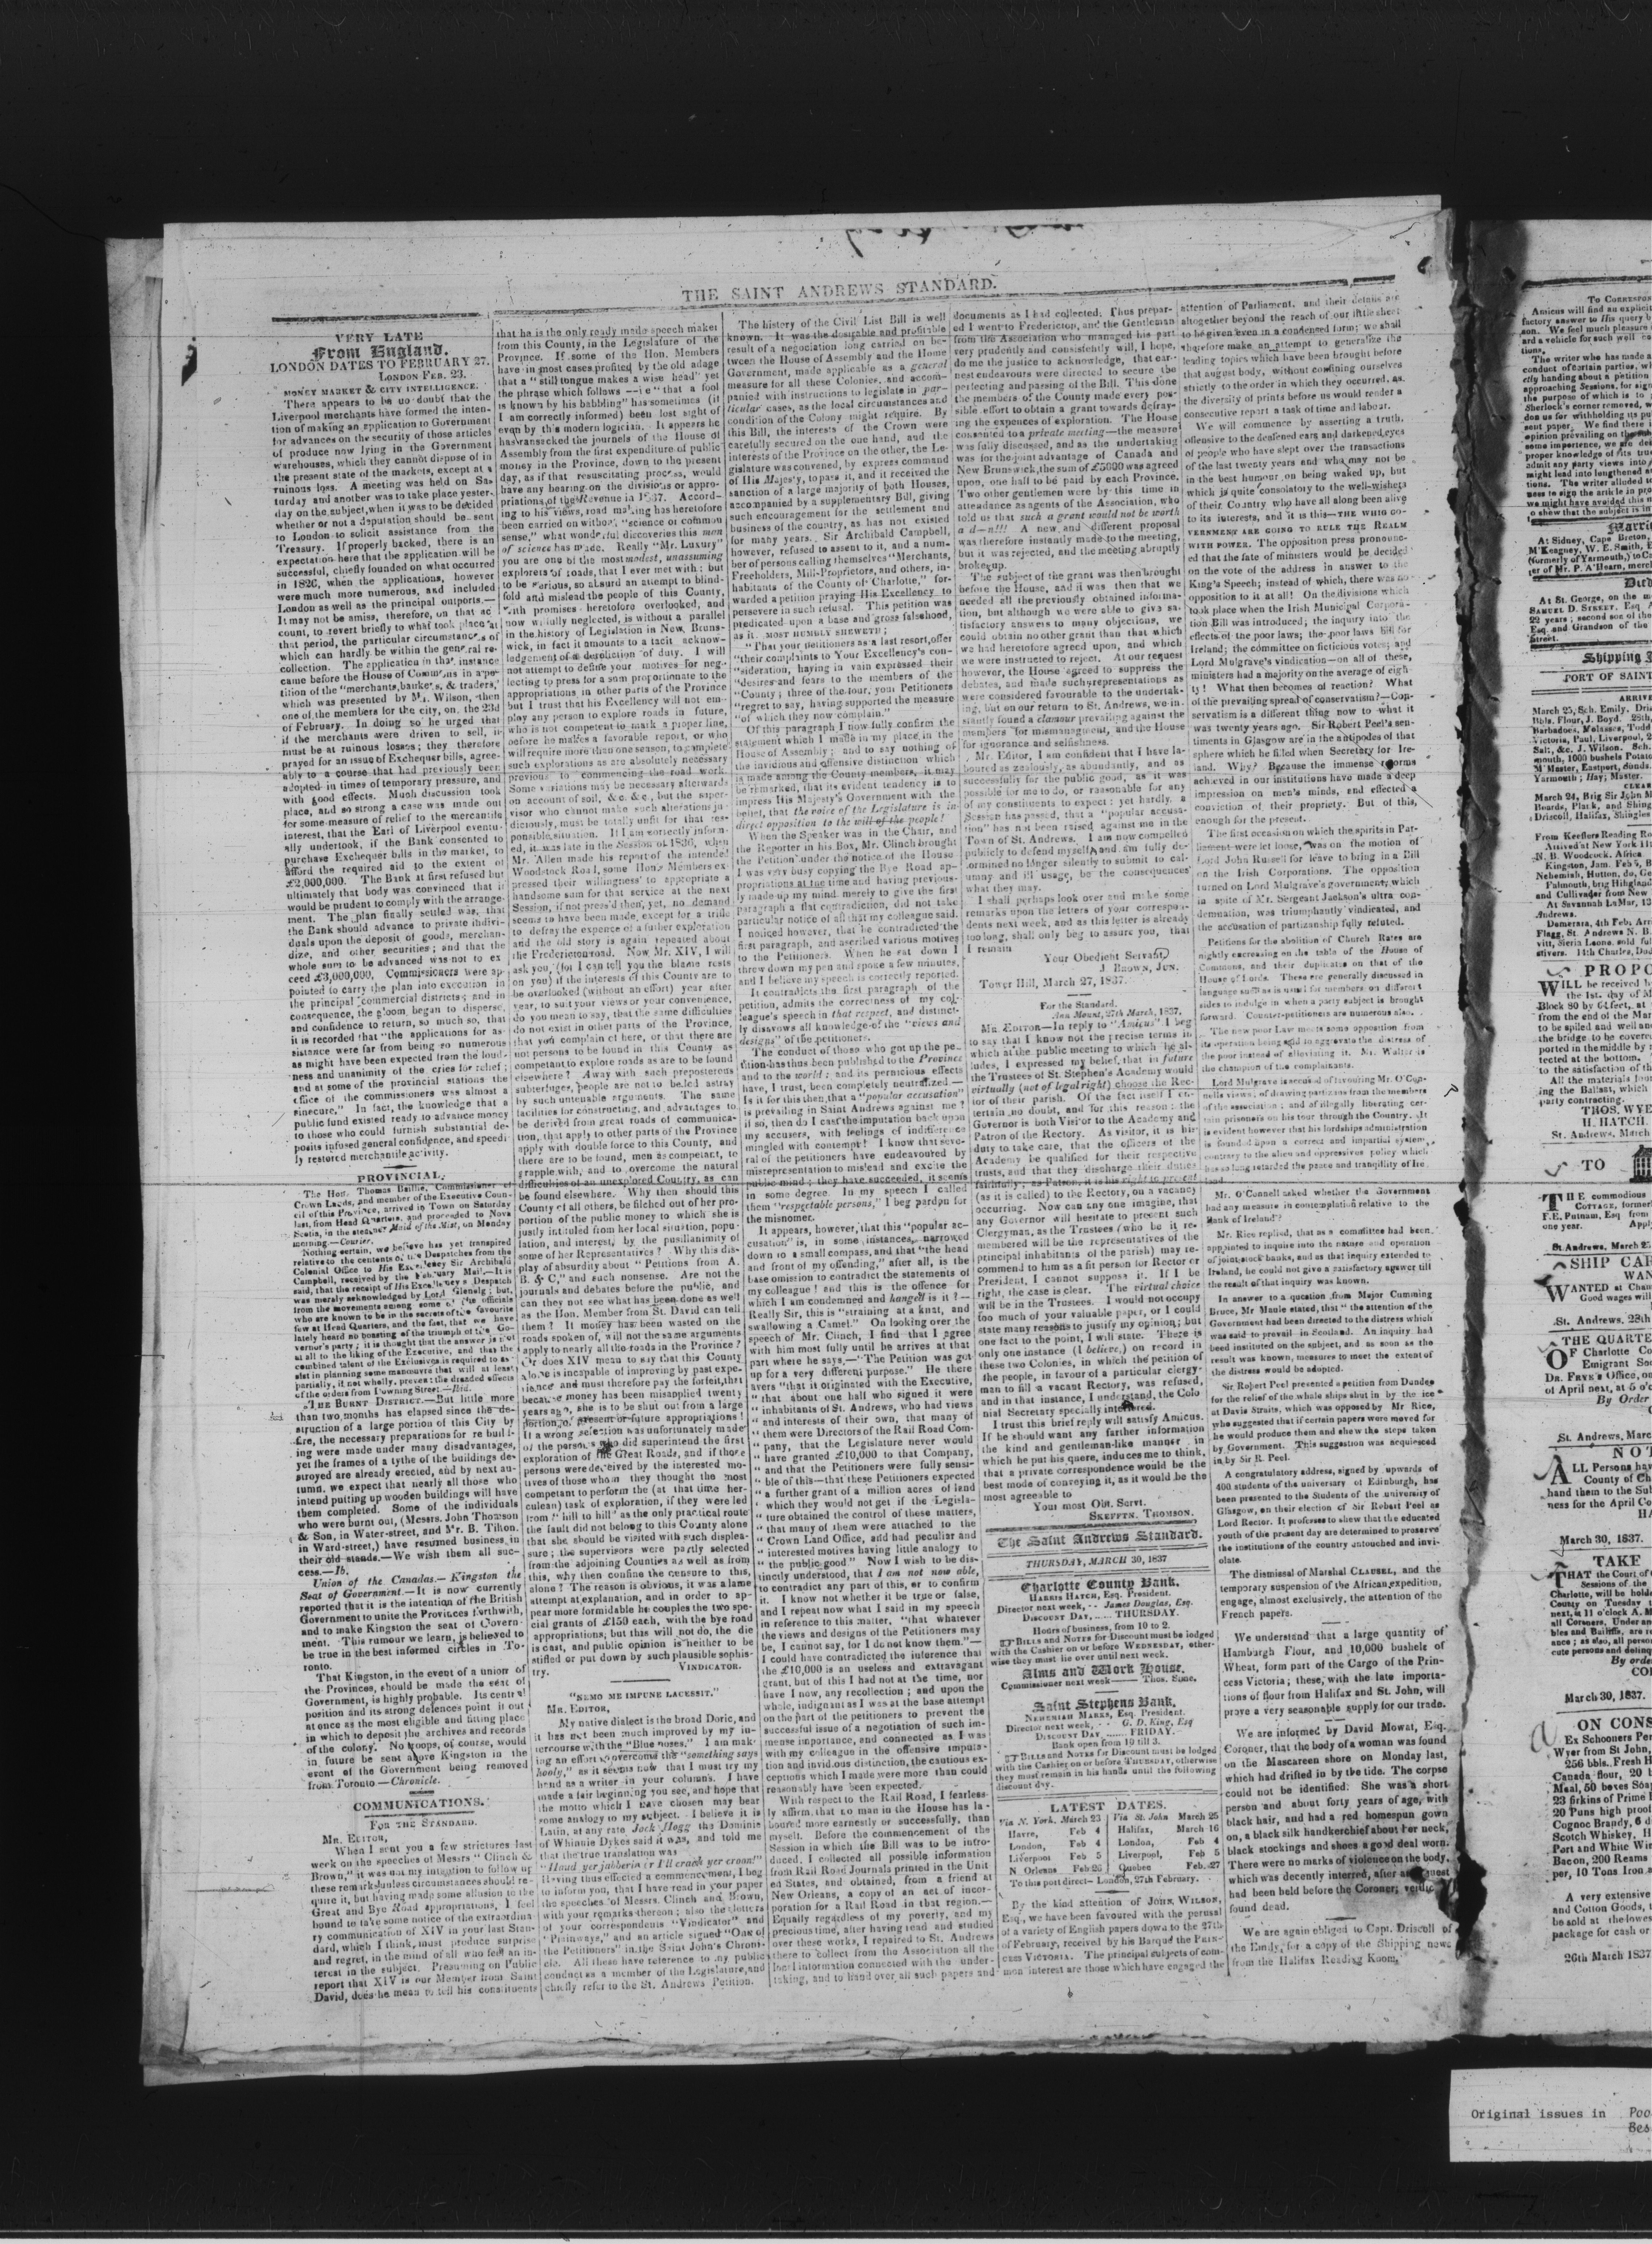 THE SAINT ANDREWS STANDARD.
VERY LATE
From England.
LONDON DATES TO FEBRUARY 27.
LONDON FEB. 23.
MONEY MARKET & CITY INTELLIGENCE.
There appears to be no doubt that the
Liverpool merchants have formed the inten-
tion of making an application to Government
for advances on the security of those articles
of produce now lying in the Government
warehouses, which they cannot dispose of in
the present state of the markets, except at a
ruinous loss. A meeting was held on Sa-
turday and another was to take place yester-
day on the subject, when it was to be decided
whether or not a deputation should be sent
to London to solicit assistance from the
Treasury. If properly backed, there is an
expectation here that the application will be
successful, chiefly founded on what occurred
in 1826, when the applications, however
were much more numerous, and included
London as well as the principal outports.—
It may not be amiss, therefore, on that ac
count, to revert briefly to what took place at
that period, the particular circumstances of
which can hardly be within the general re-
collection. The application in that instance
came before the House of Commons in a pe-
tition of the "merchants, bankers, & traders,"
which was presented by Mr. Wilson, then
one of the members for the city, on the 23d
of February. In doing so he urged that
if the merchants were driven to sell, it
must be at ruinous losses; they therefore
prayed for an issue of Exchequer bills, agree-
ably to a course that had previously been
adopted in times of temporary pressure, and
with good effects. Much discussion took
place, and so strong a case was made out
for some measure of relief to the mercantile
interest, that the Earl of Liverpool eventu-
ally undertook, if the Bank consented to
purchase Exchequer bills in the market, to
afford the required aid to the extent of
£2,000,000. The Bank at first refused but
ultimately that body was convinced that it
would be prudent to comply with the arrange-
ment. The plan finally settled was, that
the Bank should advance to private indivi-
duals upon the deposit of goods, merchan-
dize, and other securities; and that the
whole sum to be advanced was not to ex
ceed £3,000,000. Commissioners were ap-
pointed to carry the plan into execution in
the principal commercial districts; and in
consequence, the gloom began to disperse,
and confidence to return, so much so, that
it is recorded that "the applications for as-
sistance were far from being so numerous
as might have been expected from the loud-
ness and unanimity of the cries for relief;
and at some of the provincial stations the
office of the commissioners was almost a
sinecure." In fact, the knowledge that a
public fund existed ready to advance money
to those who could furnish substantial de-
posits infused general confidence, and speedi-
ly restored mercantile activity.
PROVINCIAL.
The Hon. Thomas Baillie, Commissioner of
Crown Lands, and member of the Executive Coun-
cil of this Province, arrived in Town on Saturday
last, from Head Quarters, and proceeded to Nova
Scotia, in the steamer Maid of the Mist, on Monday
morning.—Courier.
Nothing certain, we believe has yet transpired
relative to the contents of the Despatches from the
Colonial Office to His Excellency Sir Archibald
Campbell, received by the February Mail.—It is
said, that the receipt of His Excellency's Despatch
was merely acknowledged by Lord Glenelg; but,
from the movements among some of the officials
who are known to be in the secrets of the favourite
few at Head Quarters, and the fact, that we have
lately heard no boasting of the triumph of the Go-
vernor's party; it is thought that the answer is not
at all to the liking of the Executive, and that the
combined talent of the Exclusives is required to as-
sist in planning some manœuvre that will at least
partially, if not wholly, prevent the dreaded effects
of the orders from Downing Street.—Ibid.
THE BURNT DISTRICT.—But little more
than two months has elapsed since the de-
struction of a large portion of this City by
fire, the necessary preparations for re build-
ing were made under many disadvantages,
yet the frames of a tythe of the buildings de-
stroyed are already erected, and by next au-
tumn, we expect that nearly all those who
intend putting up wooden buildings will have
them completed. Some of the individuals
who were burnt out, (Messrs. John Thomson
& Son, in Water-street, and Mr. B. Tilton.
in Ward-street,) have resumed business in
their old stands.—We wish them all suc-
cess.—Ib.
Union of the Canadas.—Kingston the
Seat of Government.—It is now currently
reported that it is the intention of the British
Government to unite the Provinces forthwith,
and to make Kingston the seat of Govern-
ment. This rumour we learn, is believed to
be true in the best informed circles in To-
ronto.
That Kingston, in the event of a union of
the Provinces, should be made the seat of
Government, is highly probable. Its central
position and its strong defences point it out
at once as the most eligible and fitting place
in which to deposit the archives and records
of the colony. No troops, of course, would
in future be sent above Kingston in the
event of the Government being removed
from Toronto—Chronicle.
COMMUNICATIONS.
FOR THE STANDARD.
MR. EDITOR,
When I sent you a few strictures last
week on the speeches of Messrs "Clinch &
Brown," it was not my intention to follow up
these remarks unless circumstances should re-
quire it, but having made some allusion to the
Great and Bye Road appropriations, I feel
bound to take some notice of the extraordina-
ry communication of XIV in your last Stan-
dard, which I think, must produce surprise
and regret, in the mind of all who feel an in-
terest in the subject. Presuming on Public
report that XIV is our Member from Saint
David, does he mean to tell his constituents
that he is the only ready made speech maker
from this County, in the Legislature of the
Province. If some of the Hon. Members
have in most cases profited by the old adage
that a "still tongue makes a wise head" yet
the phrase which follows—i e "that a fool
is known by his babbling" has sometimes (if
I am correctly informed) been lost sight of
even by this modern logician. It appears he
has ransacked the journals of the House of
Assembly from the first expenditure of public
money in the Province, down to the present
day, as if that resuscitating process, would
have any bearing on the divisions or appro-
priations of the Revenue in 1837. Accord-
ing to his views, road making has heretofore
been carried on without "science or common
sense," what wonderful discoveries this man
of science has made. Really "Mr. Luxury"
you are one of the most modest, unassuming
explorers of roads, that I ever met with; but
to be serious, so absurd an attempt to blind-
fold and mislead the people of this County,
with promises heretofore overlooked, and
now wilfully neglected, is without a parallel
in the history of Legislation in New Bruns-
wick, in fact it amounts to a tacit acknow-
ledgement of a dereliction of duty. I will
not attempt to define your motives for neg-
lecting to press for a sum proportionate to the
appropriations in other parts of the Province
but I trust that his Excellency will not em-
ploy any person to explore roads in future,
who is not competent to mark a proper line,
before he makes a favorable report, or who
will require more than one season, to complete
such explorations as are absolutely necessary
previous to commencing the road work.
Some variations may be necessary afterwards
on account of soil, &c. &c., but the super-
visor who cannot make such alterations ju-
diciously, must be totally unfit for that res-
ponsible situation. If I am correctly inform-
ed, it was late in the Session of 1836, when
Mr. Allen made his report of the intended
Woodstock Road, some Hon. Members ex-
pressed their willingness to appropriate a
handsome sum for that service at the next
Session, if not press'd then, yet, no demand
seems to have been made, except for a trifle
to defray the expence of a further exploration
and the old story is again repeated about
the Fredericton road. Now Mr. XIV, I will
ask you, (for I can tell you the blame rests
on you) if the interests of this County are to
be overlooked (without an effort) year after
year, to suit your views or your convenience,
do you mean to say, that the same difficulties
do not exist in other parts of the Province,
that you complain of here, or that there are
not persons to be found in this County as
competent to explore roads as are to be found
elsewhere? Away with such preposterous
subterfuges, people are not to be led astray
by such untenable arguments. The same
facilities for constructing, and advantages to
be derived from great roads of communica-
tion, that apply to other parts of the Province
apply with double force to this County, and
there are to be found, men as competent, to
grapple with, and to overcome the natural
difficulties of an unexplored Country, as can
be found elsewhere. Why then should this
County of all others, be filched out of her pro-
portion of the public money to which she is
justly intituled from her local situation, popu-
lation, and interest, by the pusillanimity of
some of her Representatives? Why this dis-
play of absurdity about "Petitions from A.
B. & C," and such nonsense. Are not the
journals and debates before the public, and
can they not see what has been done as well
as the Hon. Member from St. David can tell
them? If money has been wasted on the
roads spoken of, will not the same arguments
apply to nearly all the roads in the Province?
Or does XIV mean to say that this County
alone is incapable of improving by past expe-
rience and must therefore pay the forfeit, that
because money has been misapplied twenty
years ago, she is to be shut out from a large
portion of present or future appropriations!
If a wrong selection was unfortunately made
of the persons who did superintend the first
exploration of the Great Roads, and if those
persons were deceived by the interested mo-
tives of those whom they thought the most
competent to perform the (at that time her-
culean) task of exploration, if they were led
from "hill to hill" as the only practical route
the fault did not belong to this County alone
that she should be visited with such displea-
sure; the supervisors were partly selected
from the adjoining Counties as well as from
this, why then confine the censure to this,
alone? The reason is obvious, it was a lame
attempt at explanation, and in order to ap-
pear more formidable he couples the two spe-
cial grants of £150 each, with the bye road
appropriations, but this will not do, the die
is cast, and public opinion is neither to be
stifled or put down by such plausible sophis-
try. VINDICATOR.
"NEMO ME IMPUNE LACESSIT."
MR. EDITOR,
My native dialect is the broad Doric, and
it has not been much improved by my in-
tercourse with the "Blue noses." I am mak-
ing an effort to overcome the "something says
hooly," as it seems now that I must try my
hand as a writer in your columns. I have
made a fair beginning you see, and hope that
the motto which I have chosen may bear
some analogy to my subject. I believe it is
Latin, at any rate Jock Hogg the Dominie
of Whinnie Dykes said it was, and told me
that the true translation was
"Haud yer jabberin or I'll crack yer croon!"
Having thus effected a commencement, I beg
to inform you, that I have read in your paper
the speeches of Messrs. Clinch and Brown,
with your remarks thereon; also the letters
of your correspondents "Vindicator" and
"Plainways," and an article signed "One of
the Petitioners" in the Saint John's Chroni-
cle. All these have reference to my public
conduct as a member of the Legislature, and
chiefly refer to the St. Andrews Petition.
The history of the Civil List Bill is well
known. It was the desirable and profitable
result of a negociation long carried on be-
tween the House of Assembly and the Home
Government, made applicable as a general
measure for all these Colonies, and accom-
panied with instructions to legislate in par-
ticular cases, as the local circumstances and
condition of the Colony might require. By
this Bill, the interests of the Crown were
carefully secured on the one hand, and the
interests of the Province on the other, the Le-
gislature was convened, by express command
of His Majesty, to pass it, and it received the
sanction of a large majority of both Houses,
accompanied by a supplementary Bill, giving
such encouragement for the settlement and
business of the country, as has not existed
for many years. Sir Archibald Campbell,
however, refused to assent to it, and a num-
ber of persons calling themselves "Merchants,
Freeholders, Mill-Proprietors, and others, in-
habitants of the County of Charlotte," for-
warded a petition praying His Excellency to
persevere in such refusal. This petition was
predicated upon a base and gross falsehood,
as it MOST HUMBLY SHEWETH;
"That your petitioners as a last resort, offer
"their complaints to Your Excellency's con-
"sideration, having in vain expressed their
"desires and fears to the members of the
"County; three of the four, your Petitioners
"regret to say, having supported the measure
"of which they now complain."
Of this paragraph I now fully confirm the
statement which I made in my place in the
House of Assembly; and to say nothing of
the invidious and offensive distinction which
is made among the County members, it may
be remarked, that its evident tendency is to
impress His Majesty's Government with the
belief, that the voice of the Legislature is in
direct opposition to the will of the people!
When the Speaker was in the Chair, and
the Reporter in his Box, Mr. Clinch brought
the Petition under the notice of the House
I was very busy copying the Bye Road ap-
propriations at the time and having previous-
ly made up my mind merely to give the first
paragraph a flat contradiction, did not take
particular notice of all that my colleague said.
I noticed however, that he contradicted the
first paragraph, and ascribed various motives
to the Petitioners. When he sat down I
threw down my pen and spoke a few minutes,
and I believe my speech is correctly reported.
It contradicts the first paragraph of the
petition, admits the correctness of my col-
league's speech in that respect, and distinct-
ly disavows all knowledge of the "views and
designs" of the petitioners.
The conduct of those who got up the pe-
tition has thus been published to the Province
and to the world; and its pernicious effects
have, I trust, been completely neutralized.—
Is it for this then, that a "popular accusation"
is prevailing in Saint Andrews against me?
if so, then do I cast the imputation back upon
my accusers, with feelings of indifference
mingled with contempt! I know that seve-
ral of the petitioners have endeavoured by
misrepresentation to mislead and excite the
public mind; they have succeeded, it seems
in some degree. In my speech I called
them "respectable persons," I beg pardon for
the misnomer.
It appears, however, that this "popular ac-
cusation" is, in some instances, narrowed
down to a small compass, and that "the head
and front of my offending," after all, is the
base omission to contradict the statements of
my colleague! and this is the offence for
which I am condemned and hanged is it?—
Really Sir, this is "straining at a knat, and
swallowing a Camel." On looking over the
speech of Mr. Clinch, I find that I agree
with him most fully until he arrives at that
part where he says,—"The Petition was got
up for a very different purpose." He there
avers "that it originated with the Executive,
"that about one half who signed it were
"inhabitants of St. Andrews, who had views
"and interests of their own, that many of
"them were Directors of the Rail Road Com-
"pany, that the Legislature never would
"have granted £10,000 to that Company,
"and that the Petitioners were fully sensi-
"ble of this—that these Petitioners expected
"a further grant of a million acres of land
"which they would not get if the Legisla-
"ture obtained the control of these matters,
"that many of them were attached to the
"Crown Land Office, and had peculiar and
"interested motives having little analogy to
"the public good." Now I wish to be dis-
tinctly understood, that I am not now able,
to contradict any part of this, or to confirm
it. I know not whether it be true or false,
and I repeat now what I said in my speech
in reference to this matter, "that whatever
the views and designs of the Petitioners may
be, I cannot say, for I do not know them."—
I could have contradicted the inference that
the £10,000 is an useless and extravagant
grant, but of this I had not at the time, nor
have I now, any recollection; and upon the
whole, indignant as I was at the base attempt
on the part of the petitioners to prevent the
successful issue of a negotiation of such im-
mense importance, and connected as I was
with my colleague in the offensive imputa-
tion and invidous distinction, the cautious ex-
ceptions which I made were more than could
reasonably have been expected.
With respect to the Rail Road, I fearless-
ly affirm, that no man in the House has la-
boured more earnestly or successfully, than
myself. Before the commencement of the
Session in which the Bill was to be intro-
duced, I collected all possible information
from Rail Road Journals printed in the Unit
ed States, and obtained, from a friend at
New Orleans, a copy of an act of incor-
poration for a Rail Road in that region.—
Equally regardless of my poverty, and my
precious time, after having read and studied
over these works, I repaired to St. Andrews
there to collect from the Association all the
local information connected with the under-
taking, and to hand over all such papers and
documents as I had collected. Thus prepar-
ed I went to Fredericton, and the Gentleman
from the Association who managed his part
very prudently and consistently will, I hope,
do me the justice to acknowledge, that ear-
nest endeavours were directed to secure the
perfecting and passing of the Bill. This done
the members of the County made every pos-
sible effort to obtain a grant towards defray-
ing the expences of exploration. The House
consented to a private meeting—the measure
was fully discussed, and as the undertaking
was for the joint advantage of Canada and
New Brunswick, the sum of £5000 was agreed
upon, one half to be paid by each Province.
Two other gentlemen were by this time in
attendance as agents of the Association, who
told us that such a grant would not be worth
a d—n!!! A new and different proposal
was therefore instantly made to the meeting,
but it was rejected, and the meeting abruptly
broke up.
The subject of the grant was then brought
before the House, and it was then that we
needed all the previously obtained informa-
tion, but although we were able to give sa-
tisfactory answers to many objections, we
could obtain no other grant than that which
we had heretofore agreed upon, and which
we were instructed to reject. At our request
however, the House agreed to suppress the
debates, and made such representations as
were considered favourable to the undertak-
ing, but on our return to St. Andrews, we in-
stantly found a clamour prevailing against the
members for mismanagment, and the House
for ignorance and selfishness.
Mr. Editor, I am confident that I have la-
boured as zealously, as abundantly, and as
successfully for the public good, as it was
possible for me to do, or reasonable for any
of my constituents to expect: yet hardly, a
Session has passed, that a "popular accusa-
tion" has not been raised against me in the
Town of St. Andrews. I am now compelled
publicly to defend myself, and am fully de-
termined no longer silently to submit to cal-
umny and ill usage, be the consequences
what they may.
I shall perhaps look over and make some
remarks upon the letters of your correspon-
dents next week, and as this letter is already
too long, shall only beg to assure you, that
I remain
Your Obedient Servant,
J. BROWN, JUN.
Tower Hill, March 27, 1837.
For the Standard.
Ann Mount, 27th March, 1837.
MR. EDITOR—In reply to "Amicus" I beg
to say that I know not the precise terms in
which at the public meeting to which he al-
ludes, I expressed my belief, that in future
the Trustees of St. Stephen's Academy would
virtually (not of legal right) choose the Rec-
tor of their parish. Of the fact itself I en-
tertain no doubt, and for this reason: the
Governor is both Visitor to the Academy and
Patron of the Rectory. As visitor, it is his
duty to take care, that the officers of the
Academy be qualified for their respective
trusts, and that they discharge their duties
faithfully; as Patron, it is his right to present
(as it is called) to the Rectory, on a vacancy
occurring. Now can any one imagine, that
any Governor will hesitate to present such
Clergyman, as the Trustees (who be it re-
membered will be the representatives of the
principal inhabitants of the parish) may re-
commend to him as a fit person for Rector or
President, I cannot suppose it. If I be
right, the case is clear. The virtual choice
will be in the Trustees. I would not occupy
too much of your valuable paper, or I could
state many reasons to justify my opinion; but
one fact to the point, I will state. There is
only one instance (I believe,) on record in
these two Colonies, in which the petition of
the people, in favour of a particular clergy-
man to fill a vacant Rectory, was refused,
and in that instance, I understand, the Colo
nial Secretary specially interfered.
I trust this brief reply will satisfy Amicus.
If he should want any farther information
the kind and gentleman-like manner in
which he put his quere, induces me to think,
that a private correspondence would be the
best mode of conveying it, as it would be the
most agreeable to
Your most Obt. Servt.
SKEFFTN. THOMSON.
The Saint Andrews Standard.
THURSDAY, MARCH 30, 1837
Charlotte County Bank.
HARRIS HATCH, Esq. President.
Director next week, - - James Douglas, Esq.
DISCOUNT DAY, ..... THURSDAY.
Hours of business, from 10 to 2.
BILLS and NOTES for Discount must be lodged
with the Cashier on or before WEDNESDAY, other-
wise they must lie over until next week.
Alms and Work House.
Commissioner next week—— THOS. SIME.
Saint Stephens Bank,
NEHEMIAH MARKS, Esq. President.
Director next week, - - G. D. King, Esq
DISCOUNT DAY ...... FRIDAY.
Bank open from 10 till 3.
BILLS and NOTES for Discount must be lodged
with the Cashier on or before THURSDAY, otherwise
they must remain in his hands until the following
discount day.
LATEST DATES.
Via N. York. March 23 Via St. John March 25
Havre, Feb 4 Halifax, March 16
London, Feb 4 London, Feb 4
Liverpool Feb 5 Liverpool, Feb 5
N Orleans Feb 26 Quebec Feb. 27
To this port direct—London, 27th February.
By the kind attention of JOHN WILSON,
Esq., we have been favoured with the perusal
of a variety of English papers down to the 27th
of February, received by his Barque the PRIN-
CESS VICTORIA. The principal subjects of com-
mon interest are those which have engaged the
attention of Parliament, and their details are
altogether beyond the reach of our little sheet
to be given even in a condensed form; we shall
therefore make an attempt to generalize the
leading topics which have been brought before
that august body, without confining ourselves
strictly to the order in which they occurred, as
the diversity of prints before us would render a
consecutive report a task of time and labour.
We will commence by asserting a truth,
offensive to the deafened ears and darkened eyes
of people who have slept over the transactions
of the last twenty years and who may not be
in the best humour on being waked up, but
which is quite consolatory to the well-wishers
of their Country who have all along been alive
to its interests, and it is this—THE WHIG GO-
VERNMENT ARE GOING TO RULE THE REALM
WITH POWER. The opposition press pronounc-
ed that the fate of ministers would be decided
on the vote of the address in answer to the
King's Speech; instead of which, there was no
opposition to it at all! On the divisions which
took place when the Irish Municipal Corpora-
tion Bill was introduced; the inquiry into the
effects of the poor laws; the poor laws bill for
Ireland; the committee on ficticious votes; and
Lord Mulgrave's vindication—on all of these,
ministers had a majority on the average of eigh-
ty! What then becomes of reaction? What
of the prevailing spread of conservatism?—Con-
servatism is a different thing now to what it
was twenty years ago. Sir Robert Peel's sen-
timents in Glasgow are in the antipodes of that
sphere which he filled when Secretary for Ire-
land. Why? Because the immense reforms
achieved in our institutions have made a deep
impression on men's minds, and effected a
conviction of their propriety. But of this,
enough for the present.
The first occasion on which the spirits in Par-
liament were let loose, was on the motion of
Lord John Russell for leave to bring in a Bill
on the Irish Corporations. The opposition
turned on Lord Mulgrave's government, which
in spite of Mr. Sergeant Jackson's ultra con-
demnation, was triumphantly vindicated, and
the accusation of partizanship fully refuted.
Petitions for the abolition of Church Rates are
nightly encreasing on the table of the House of
Commons, and their duplicates on that of the
House of Lords. These are generally discussed in
language such as is usual for members on different
sides to indulge in when a party subject is brought
forward. Counter-petitions are numerous also.
The new poor Law meets some opposition from
its operation being said to aggravate the distress of
the poor instead of alleviating it. Mr. Walter is
the champion of the complainants.
Lord Mulgrave is accused of favouring Mr. O'Con-
nells views; of drawing partizans from the members
of the association; and of illegally liberating cer-
tain prisoners on his tour through the Country. It
is evident however that his lordships administration
is founded upon a correct and impartial system,
contrary to the alien and oppressive policy which
has so long retarded the peace and tranquility of Ire
land.
Mr. O'Connell asked whether the Government
had any measure in contemplation relative to the
Bank of Ireland?
Mr. Rice replied, that as a committee had been
appointed to inquire into the nature and operation
of joint stock banks, and as that inquiry extended to
Ireland, he could not give a satisfactory answer till
the result of that inquiry was known.
In answer to a question from Major Cumming
Bruce, Mr Maule stated, that "the attention of the
Government had been directed to the distress which
was said to prevail in Scotland. An inquiry had
been instituted on the subject, and as soon as the
result was known, measures to meet the extent of
the distress would be adopted.
Sir Robert Peel presented a petition from Dundee
for the relief of the whale ships shut in by the ice
at Davis Straits, which was opposed by Mr Rice,
who suggested that if certain papers were moved for
he would produce them and shew the steps taken
by Government. This suggestion was acquiesced
in by Sir R. Peel.
A congratulatory address, signed by upwards of
400 students of the university of Edinburgh, has
been presented to the Students of the university of
Glasgow, on their election of Sir Robert Peel as
Lord Rector. It professes to shew that the educated
youth of the present day are determined to preserve
the institutions of the country untouched and invi-
olate.
The dismissal of Marshal CLAUSEL, and the
temporary suspension of the African expedition,
engage, almost exclusively, the attention of the
French papers.
We understand that a large quantity of
Hamburgh Flour, and 10,000 bushels of
Wheat, form part of the Cargo of the Prin-
cess Victoria; these, with the late importa-
tions of flour from Halifax and St. John, will
prove a very seasonable supply for our trade.
We are informed by David Mowat, Esq.
Coroner, that the body of a woman was found
on the Mascareen shore on Monday last,
which had drifted in by the tide. The corpse
could not be identified. She was a short
person and about forty years of age, with
black hair, and had a red homespun gown
on, a black silk handkerchief about her neck,
black stockings and shoes a good deal worn.
There were no marks of violence on the body,
which was decently interred, after
had been held before the Coroner; verdict
found dead.
We are again obliged to Capt. Driscoll of
the Emily, for a copy of the Shipping news
from the Halifax Reading Room,
To CORRESPON
Amicus will find an explicit
factory answer to His query b
son. We feel much pleasure
ard a vehicle for such well co
tions.
The writer who has made a
conduct of certain parties, wh
etly handing about a petition
approaching Sessions, for sign
the purpose of which is to
Sherlock's corner removed, w
don us for withholding its pu
sent paper. We find there i
opinion prevailing on the sub
some importance, we are des
proper knowledge of its true
admit any party views into
might lead into lengthened a
tions. The writer alluded t
ness to sign the article in pro
we might have avoided this n
o shew that the subject is in
Marrie
At Sidney, Cape Breton,
M'Keagney, W. E. Smith, E
(formerly of Yarmouth,) to Ca
ter of Mr. P. A'Hearn, merch
Died
At St. George, on the m
SAMUEL D. STREET, Esq A
22 years; second son of the
Esq. and Grandson of the
Street.
Shipping J
PORT OF SAINT
ARRIVE
March 25, Sch. Emily, Dris
Bbls. Flour, J. Boyd. 28th,
Barbadoes, Molasses, Todd
Victoria, Paul, Liverpool, 2
Salt, &c. J. Wilson. Sch.
mouth, 1000 bushels Potato
M'Master, Eastport, donds.
Yarmouth; Hay; Master.
CLEAR
March 24, Brig Sir John M
Boards, Plank, and Shing
Driscoll, Halifax, Shingles
From Keeflers Reading Ro
Arrived at New York 11
N. B. Woodcock, Africa
Kingston, Jam. Feb 5, B
Nehemiah, Hutton, do, Ge
Falmouth, brig Highland
and Cullivader from New
At Savannah LaMar, 13
Andrews.
Demerara, 4th Feb. Arr
Flagg, St. Andrews N. B.
vitt, Sieria Leone, sold ful
stivers. 14th Charles, Dod
PROPO
WILL be received b
the 1st. day of M
Block 80 by 64 feet, at
from the end of the Mar
to be spiled and well anc
the bridge to be covere
ported in the middle by
tected at the bottom,
to the satisfaction of th
All the materials fou
ing the Ballast, which
party contracting.
THOS. WYE
H. HATCH.
St. Andrews, March
TO
THE commodious
COTTAGE, former
T.E. Putnam, Esq from
one year. Apply
St. Andrews, March 2
SHIP CAR
WAN
WANTED at Cham
Good wages will
St. Andrews, 28th
THE QUARTE
OF Charlotte Co
Emigrant Soc
DR. FRYE's Office, on
of April next, at 6 o'c
By Order
St. Andrews, Marc
NOT
ALL Persons hav
County of Ch
hand them to the Sub
ness for the April Co
HA
March 30, 1837.
TAKE
THAT the Court of
Sessions of the
Charlotte, will be holde
County on Tuesday t
next, at 11 o'clock A. M
all Coroners, Under an
bles and Bailiffs, are re
ance; as also, all person
cute persons and delinq
By orde
CO
March 30, 1837.
ON CONS
Ex Schooners Per
Wyer from St John,
256 bbls. Fresh H
Canada flour, 20 b
Meal, 50 boxes Soap
23 firkins of Prime
20 Puns high proof
Cognac Brandy, 6 d
Scotch Whiskey, H
Port and White Win
Bacon, 200 Reams
per, 10 Tons Iron a
A very extensive
and Cotton Goods, t
be sold at the lowes
package for cash or
26th March 1837
Original issues in Poo
Bes